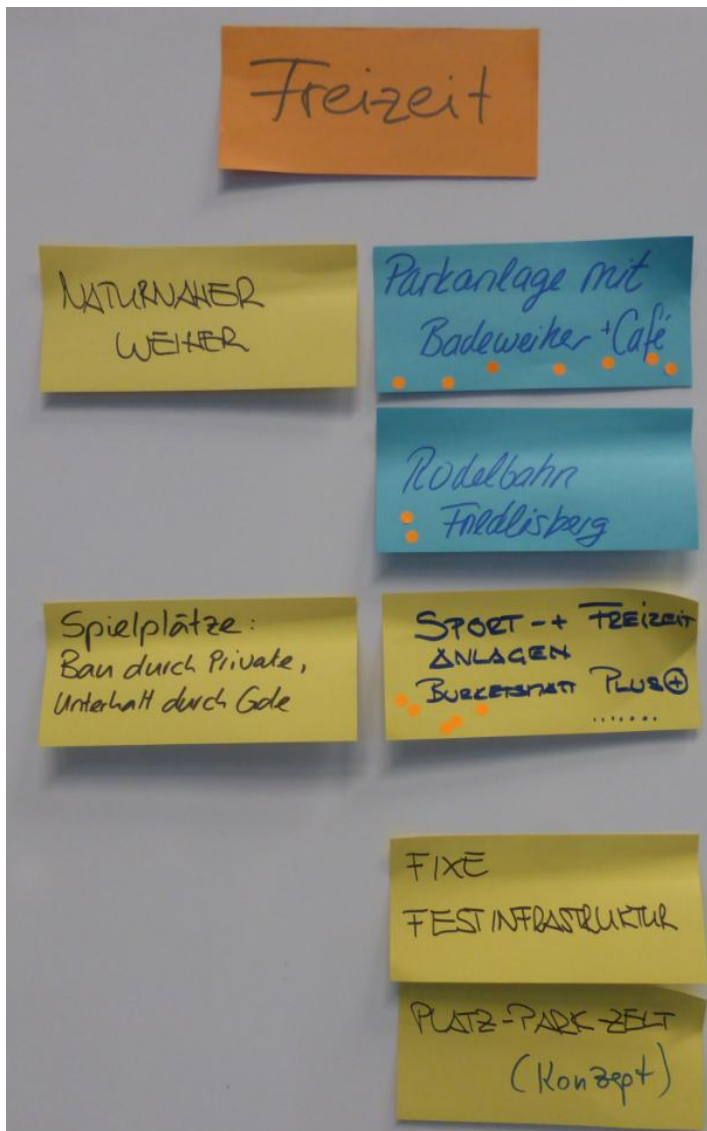 Freizeit
NATURNAHER
WEIHER
Parkanlage mit
Badeweiher + Café
Rodelbahn
Friedlisberg
Spielplätze:
Bau durch Private,
Unterhalt durch Gde
SPORT-+ FREIZEIT
ANLAGEN
BURKERTSMATT PLUS +
.......
FIXE
FESTINFRASTRUKTUR
PLATZ-PARK-ZELT
(Konzept)